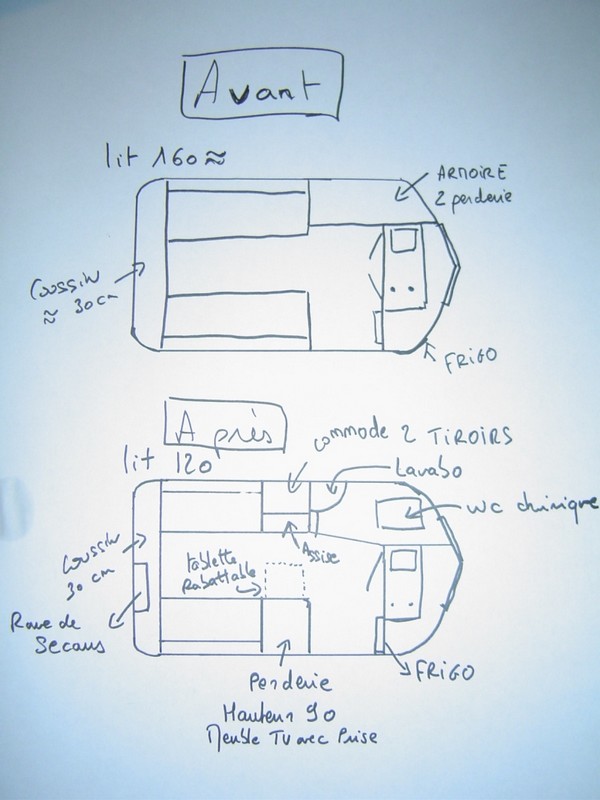 Avant
lit 160 ≈
ARMOIRE
2 penderie
Coussin
≈ 30 cm
FRIGO
Après
lit 120
commode 2 TIROIRS
Lavabo
WC chimique
Assise
Coussin
30 cm
tablette
Rabattable
Roue de
Secours
FRIGO
Penderie
Hauteur 90
Meuble TV avec Prise